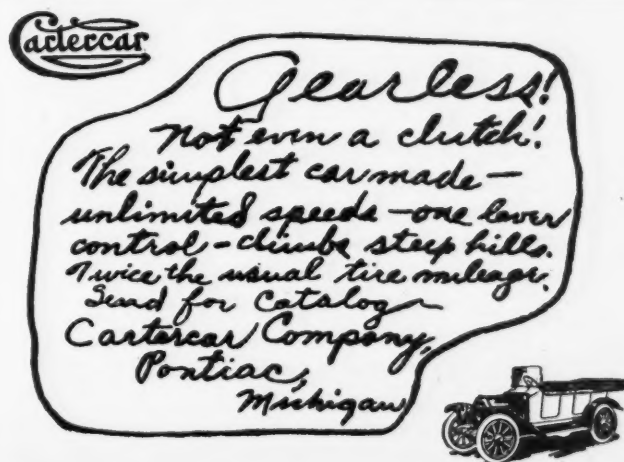 Cartercar
Gearless!
Not even a clutch!
The simplest car made—
unlimited speeds—one lever
control—climbs steep hills.
Twice the usual tire mileage.
Send for Catalog
Cartercar Company,
Pontiac,
Michigan